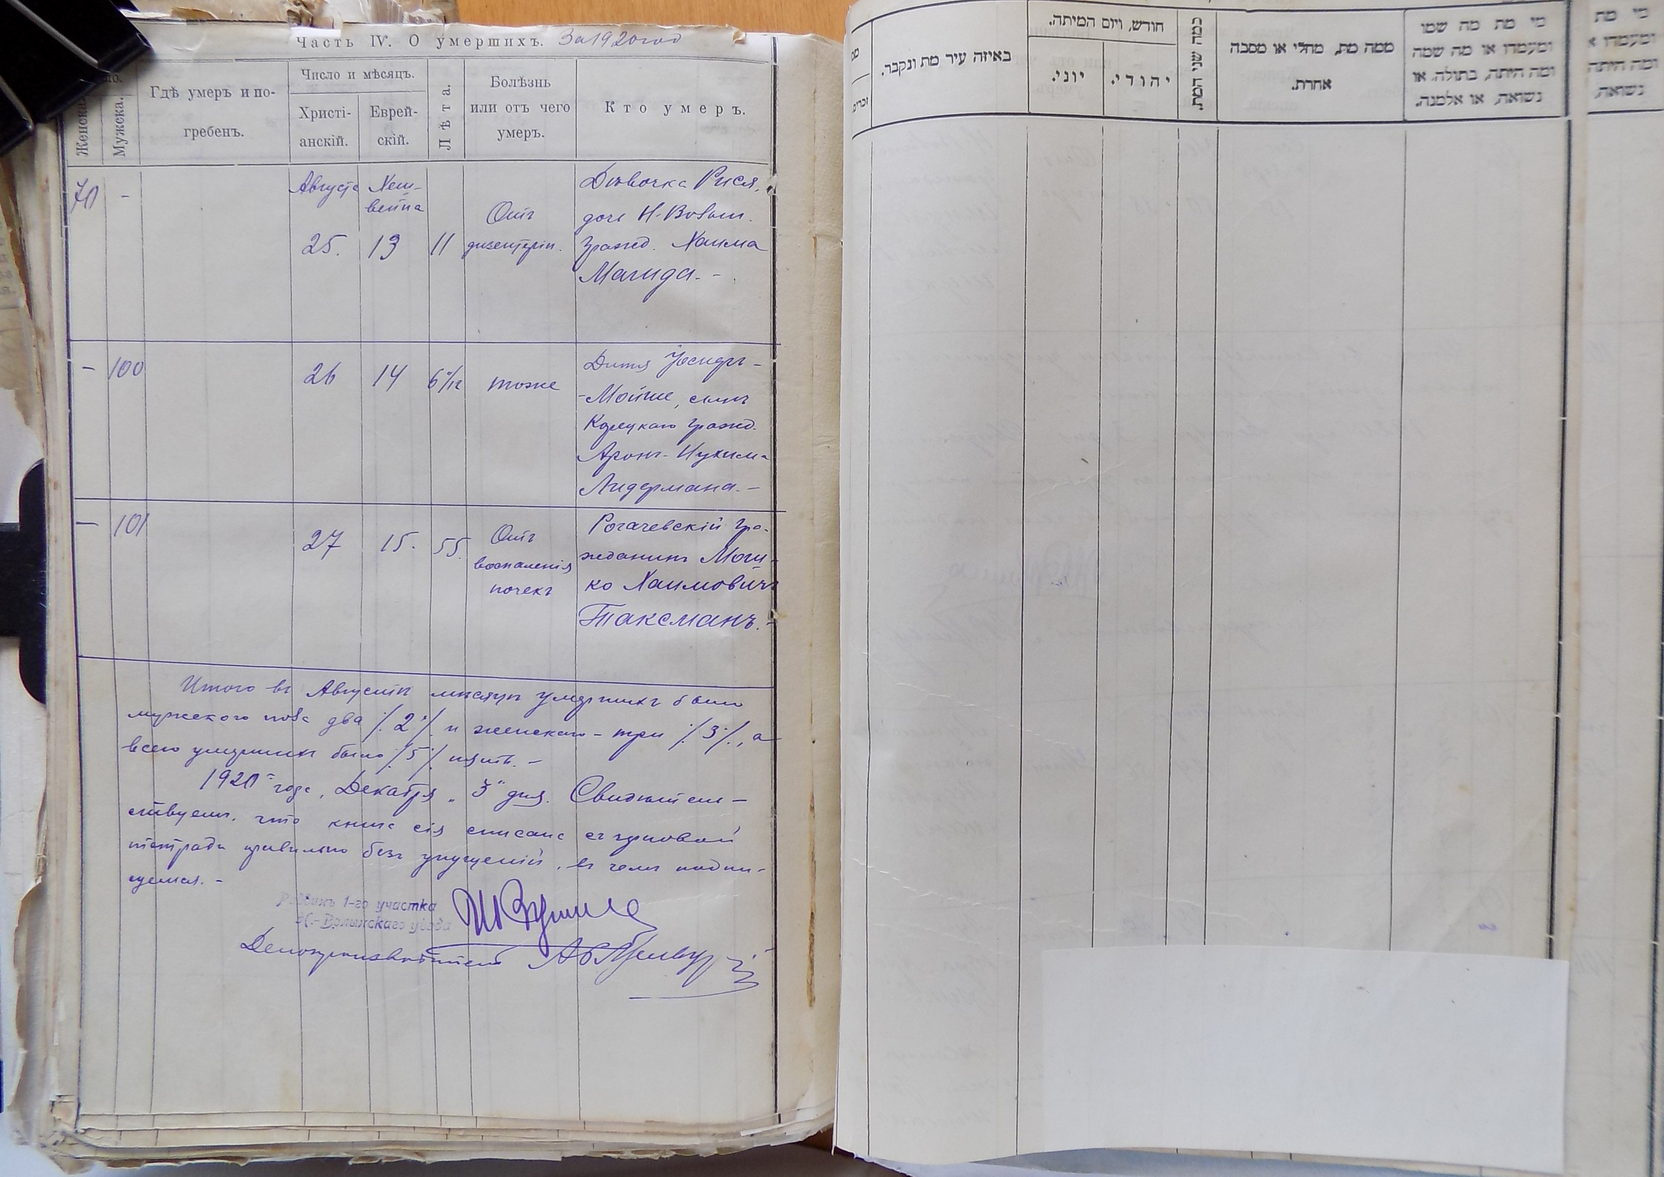 Часть IV. О умершихъ. За 1920 год
Женска.
Мужска.
Гдѣ умеръ и по-
гребенъ.
Число и мѣсяцъ.
Христі-
анскій.
Еврей-
скій.
Лѣта.
Болѣзнь
или отъ чего
умеръ.
Кто умеръ.
70 -
Августа
25.
13
11
Отъ
дизентеріи.
Дѣвочка Рися,
дочь Н-Волын.
гражд. Хаима
Магида. -
- 100
26 14 6/12 тоже
Дитя
-Мойше, сынъ
Корецкаго гражд.
Аронъ-Нухима
Лидермана. -
- 101
27 15. 55.
Отъ
воспаленія
почекъ
Рогачевскій гра-
жданинъ Мош-
ко Хаимовичъ
Таксманъ. -
Итого въ Августѣ мѣсяцѣ умершихъ было
мужского пола два /2/ и женскаго - три /3/, а
всего умершихъ было /5/ пять. -
1920 года, Декабря "3" дня. Свидѣтель-
ствуемъ, что книга сія списана съ черновой
тетради правильно безъ упущеній, въ чемъ подпи-
суемся. -
Раввинъ 1-го участка
Н.-Волынскаго уѣзда
Делопроизводитель
באיזה עיר מת ונקבר.
חודש, ויום המיתה.
יוני.
יהודי.
כמה שני המת.
ממה מת, מחלי או מסבה
אחרת.
מי מת מה שמו
ומעמדו או מה שמה
ומה היתה, בתולה, או
נשואה, או אלמנה.
מי מת
ומעמדו א
ומה היתה
נשואה,